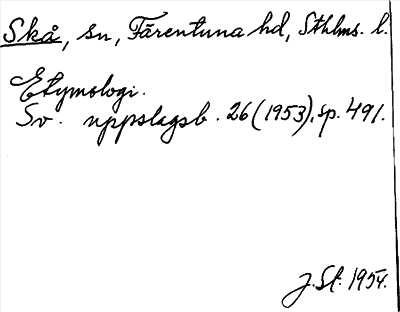 Skå, sn, Färentuna hd, Sthlms. l.
Etymologi.
Sv. uppslagsb. 26 (1953), sp. 491.
J. St. 1954.